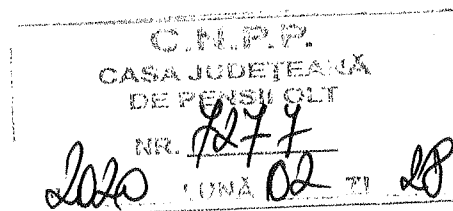 C.N.P.P.
CASA JUDEȚEANĂ
DE PENSII OLT
NR. 7277
2020 LUNĂ 02 ZI 28